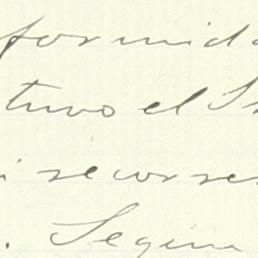 formida
tuvo el S
i recorre
. Segun